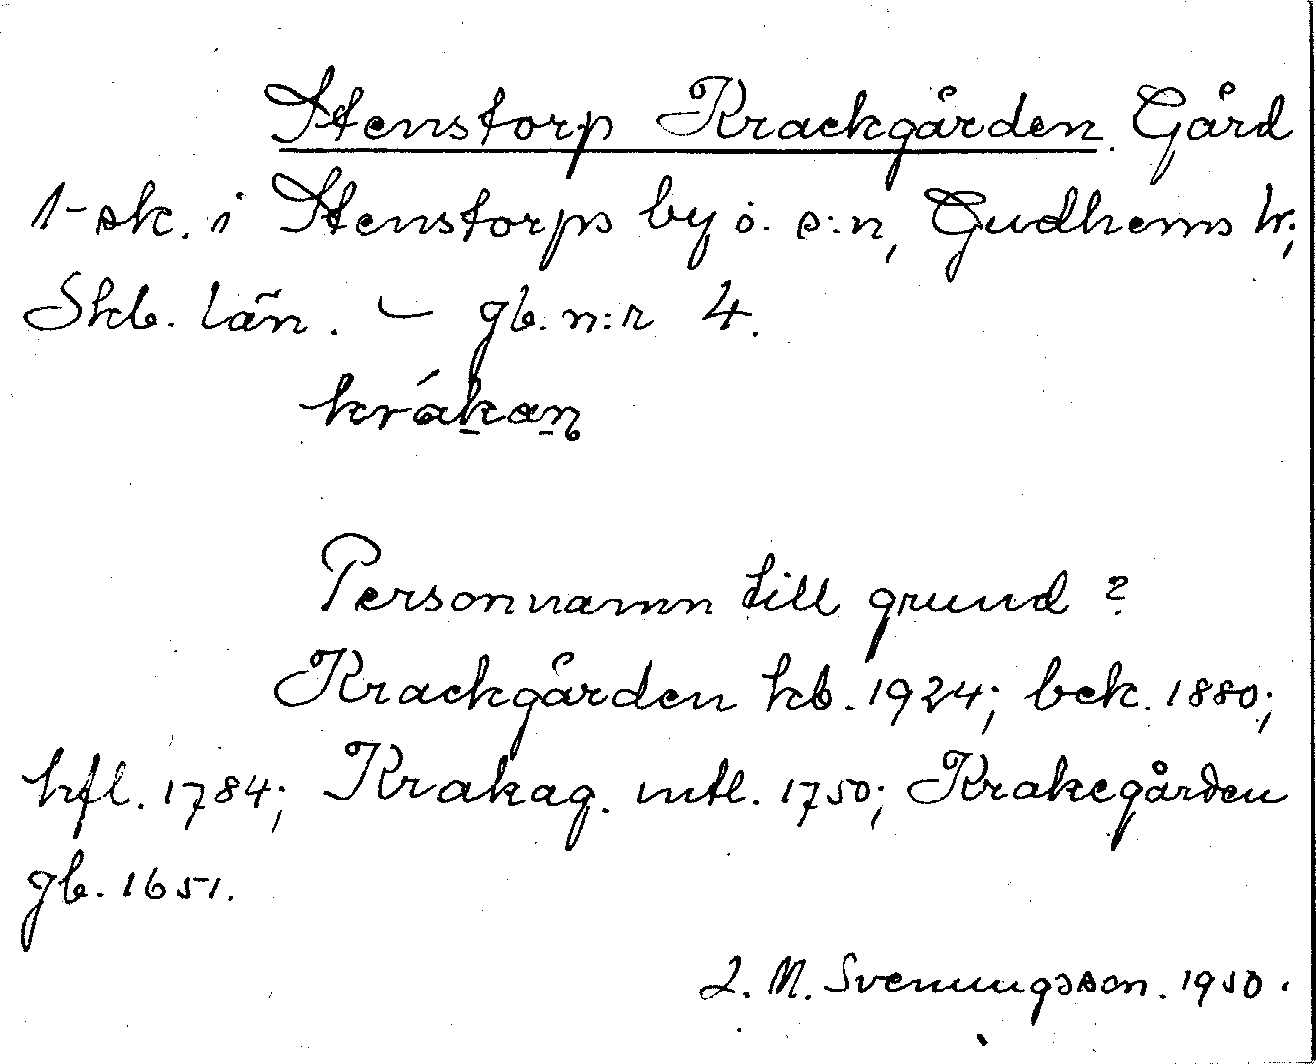 Stenstorp Krackgården. Gård
1-sk. i Stenstorps by o. s:n, Gudhems hr;
Skb. län. – gb. n:r 4.
krákan
Personnamn till grund?
Krackgården kb. 1924; bek. 1880;
hfl. 1784; Krakag. mtl. 1750; Krakegården
gb. 1651.
J. M. Svenungsson. 1950.